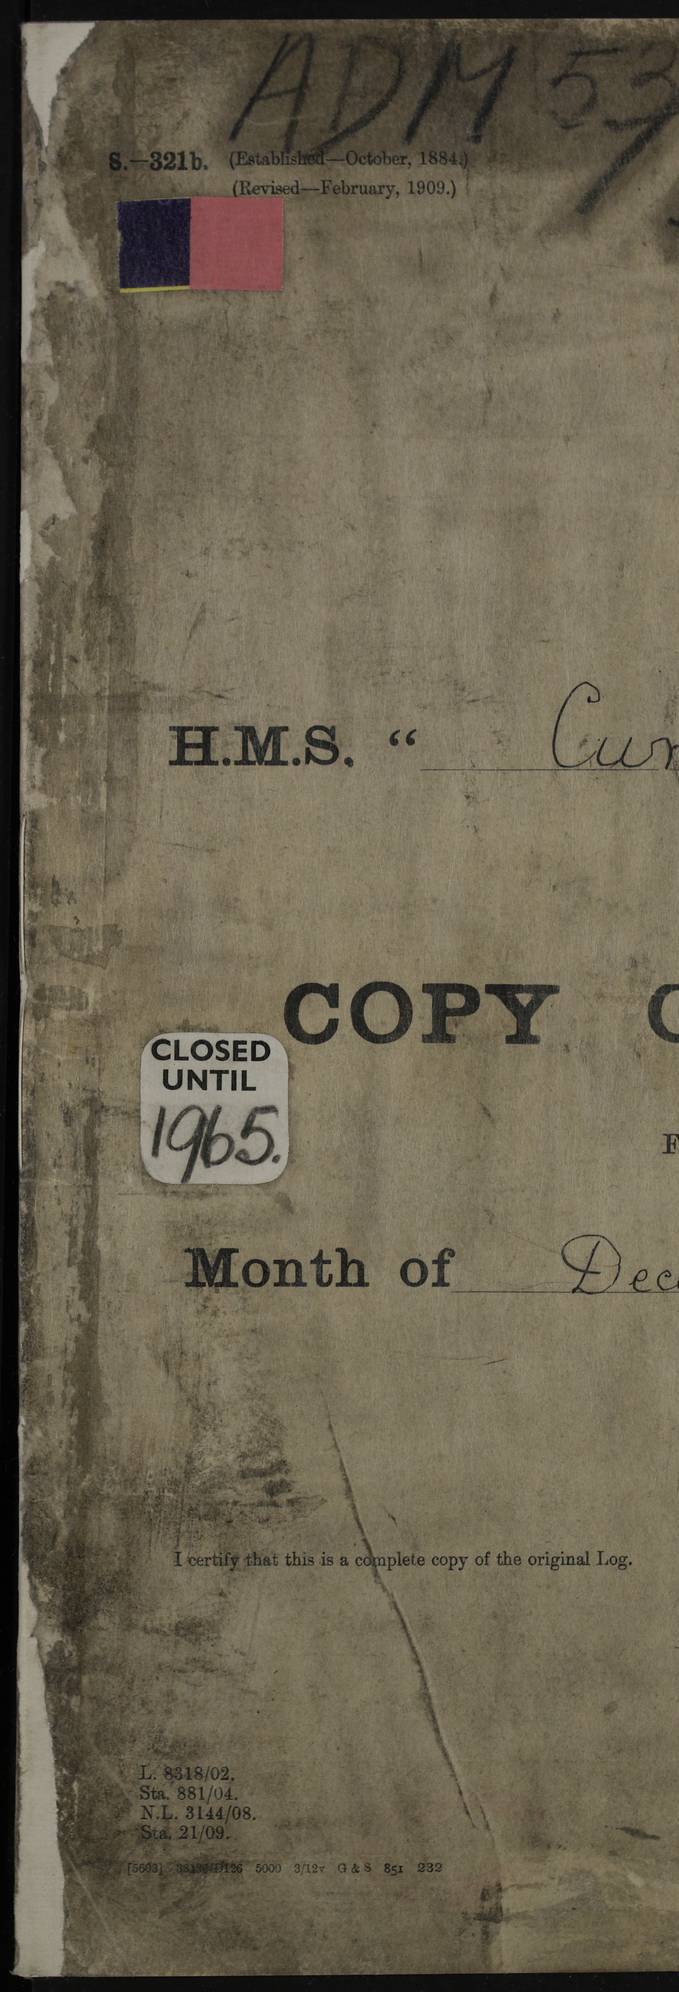 ADM 53
S.—321b. (Established—October, 1884.)
(Revised—February, 1909.)
H.M.S. “ Cur
COPY
CLOSED
UNTIL
1965.
Month of Dec
I certify that this is a complete copy of the original Log.
L. 8318/02.
Sta. 881/04.
N.L. 3144/08.
Sta. 21/09.
[5603] 5000 3/12v G & S 851 232